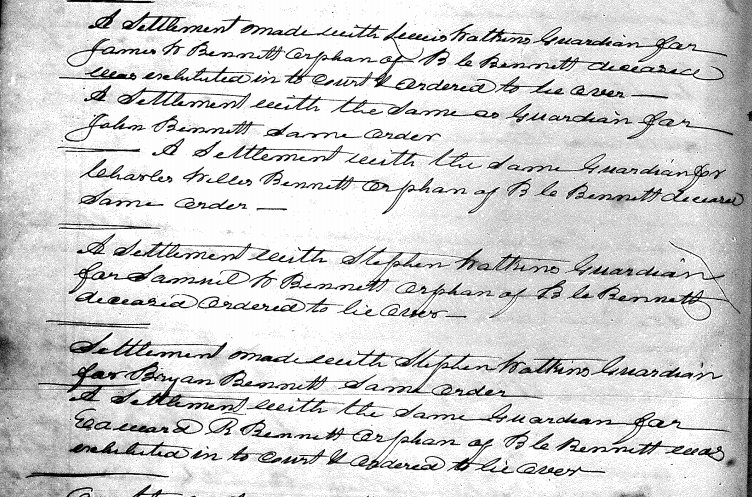 A Settlement made with Lewis Watkins Guardian for
James W Bennett Orphan of B C Bennett deceased
was exhibited in to Court & Ordered to lie over —
A Settlement with the Same as Guardian for
John Bennett Same Order
A Settlement with the Same Guardian for
Charles Bennett Orphan of B C Bennett deceased
Same Order —
A Settlement with Stephen Watkins Guardian
for Samuel W Bennett Orphan of B C Bennett
deceased Ordered to lie Over —
Settlement made with Stephen Watkins Guardian
for Bryan Bennett Same Order
A Settlement with the Same Guardian for
Edward R Bennett Orphan of B C Bennett was
exhibited in to Court & Ordered to lie Over